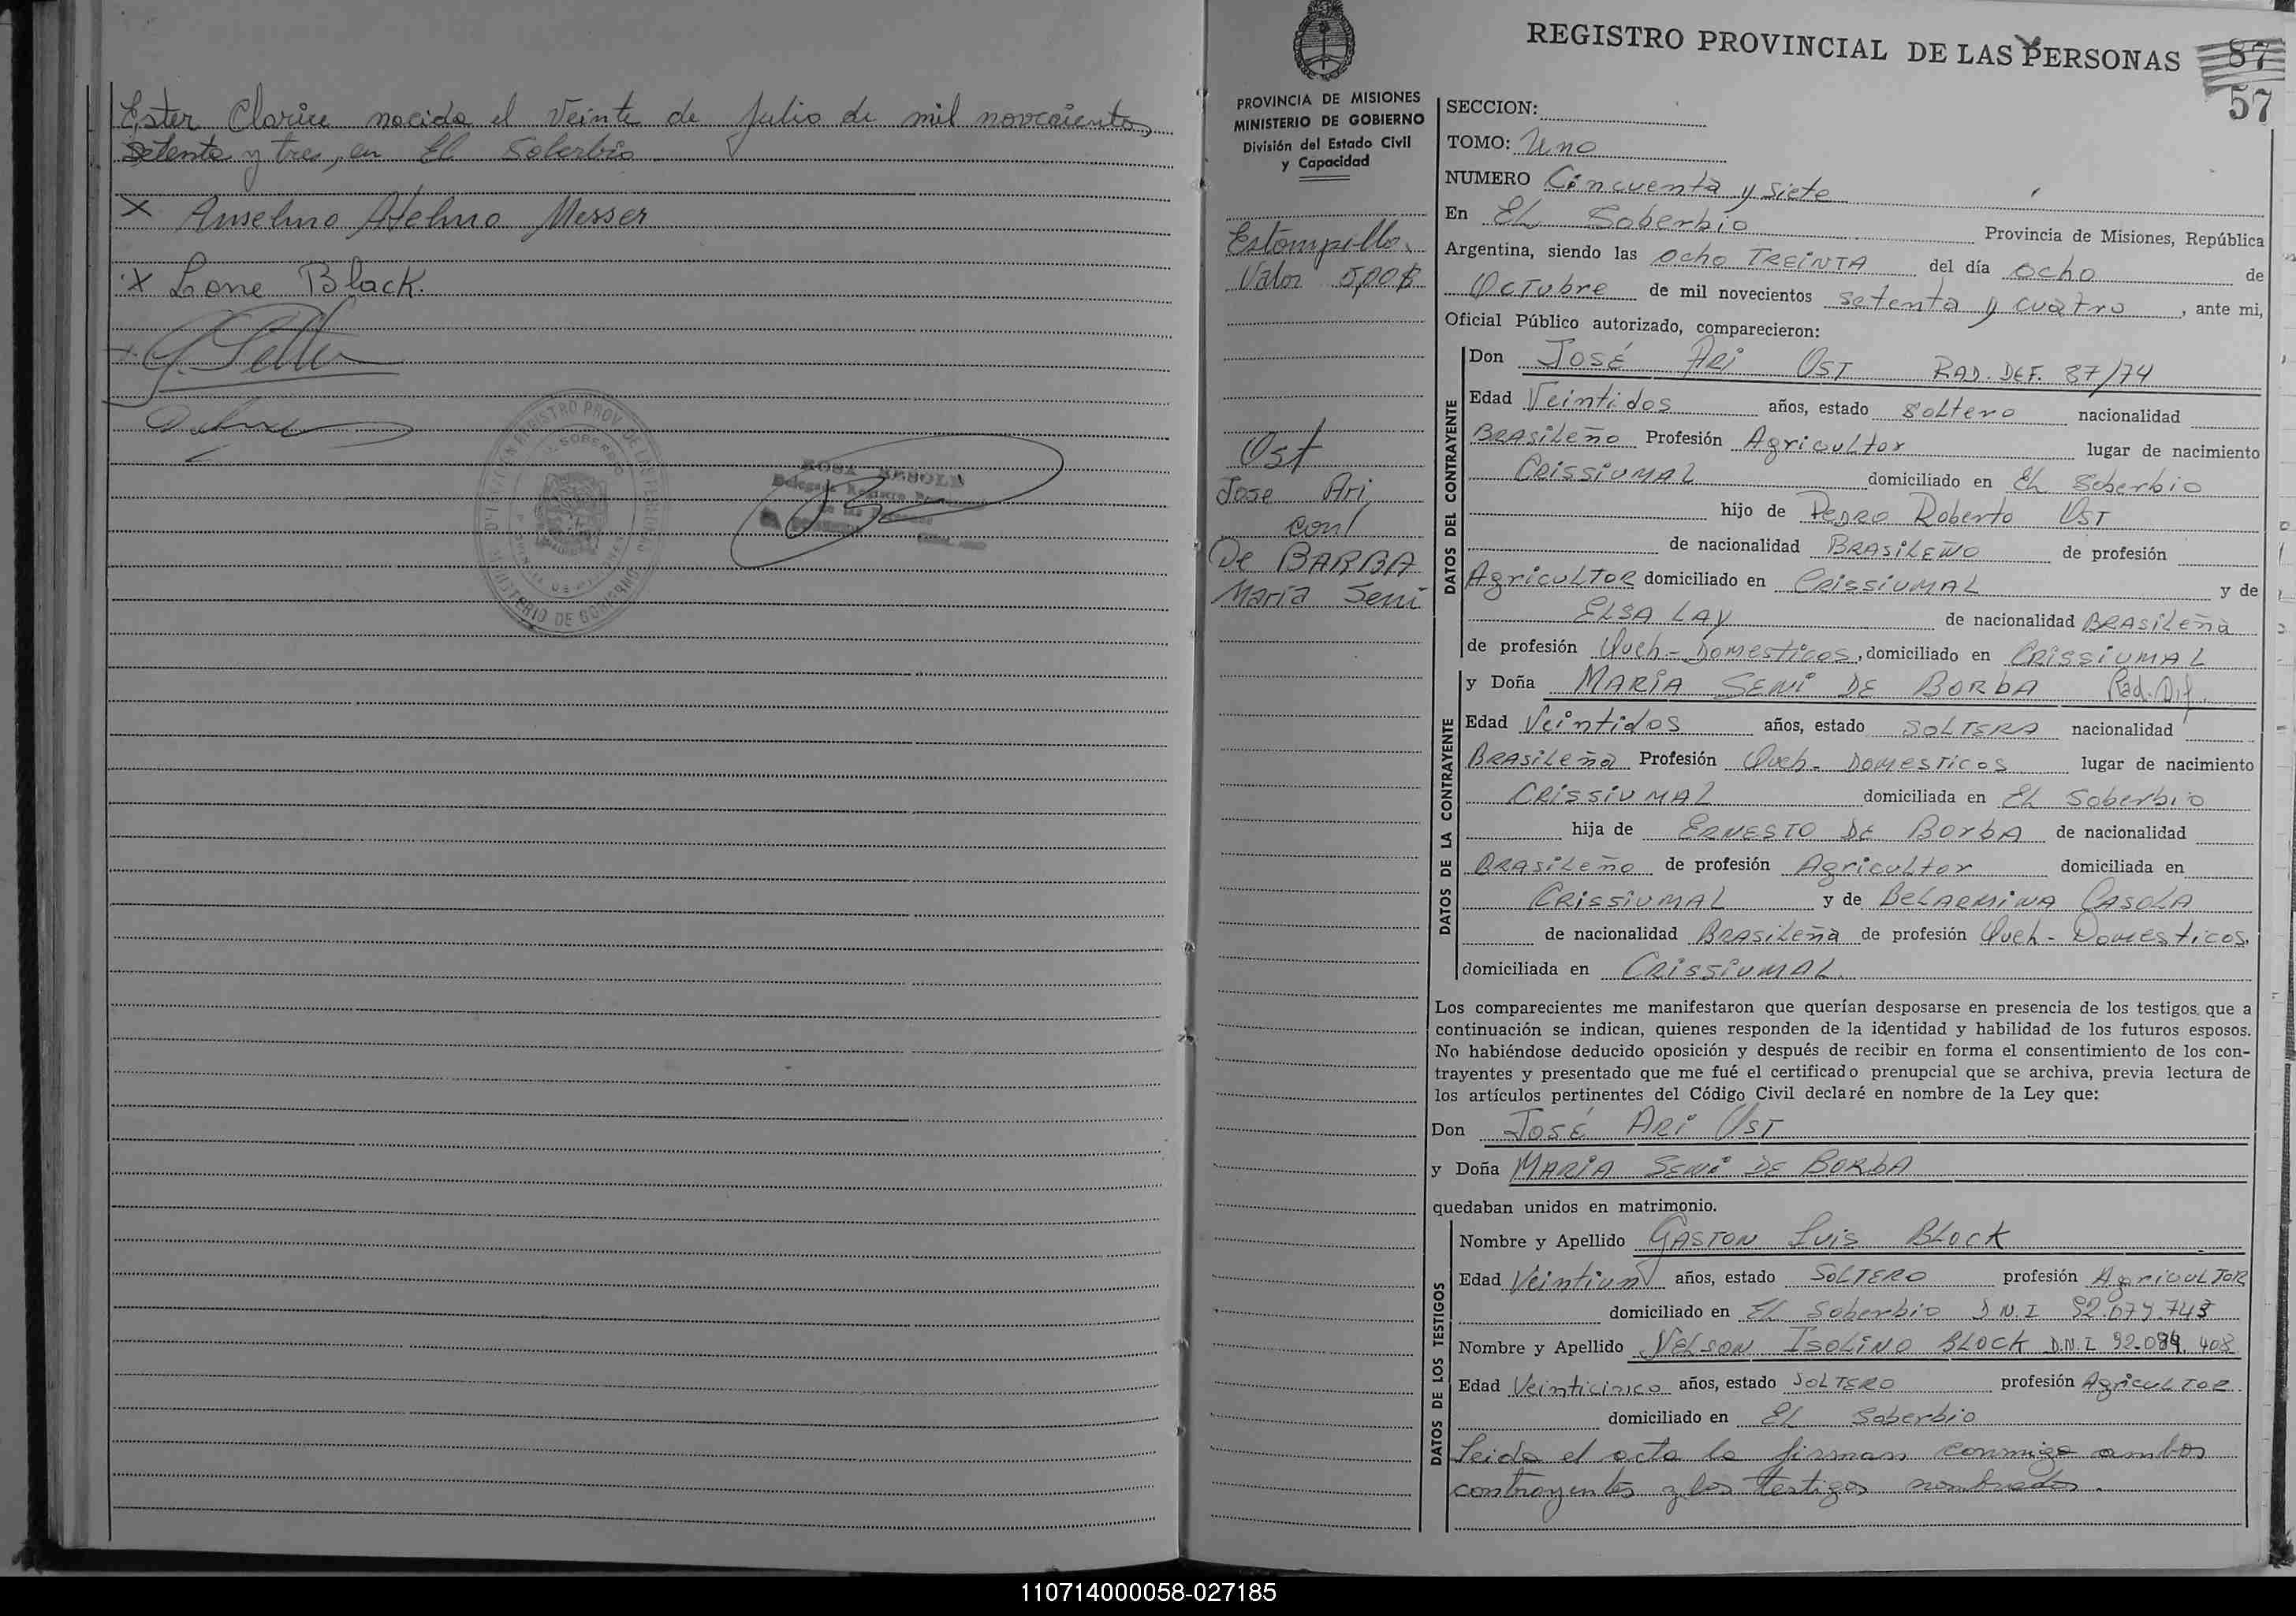 Ester Clarice nacida el Veinte de Julio de mil novecientos
Setenta y tres, en El Soberbio
X Anselmo Atelmo Messer
X Lone Black.
REGISTRO PROVINCIAL DE LAS PERSONAS
87
57
PROVINCIA DE MISIONES
MINISTERIO DE GOBIERNO
División del Estado Civil
y Capacidad
Estampilla
Valor 5,00 $
Ost
Jose Ari
con
De BARBA
Maria Seni
SECCION:
TOMO: Uno
NUMERO Cincuenta y Siete
En El Soberbio Provincia de Misiones, República
Argentina, siendo las ocho TREINTA del día ocho de
Octubre de mil novecientos setenta y cuatro, ante mi,
Oficial Público autorizado, comparecieron:
DATOS DEL CONTRAYENTE
Don José Ari Ost RAD. DEF. 87/74
Edad Veintidos años, estado soltero nacionalidad
BRASiLeño Profesión Agricultor lugar de nacimiento
CRISSIUMAL domiciliado en El Soberbio
hijo de PEDRO Roberto OST
de nacionalidad BRASILEÑO de profesión
AgricULTOR domiciliado en CRISSIUMAL y de
ELSA LAY de nacionalidad BRASiLeña
de profesión Queh-Domesticos, domiciliado en CRISSIUMAL
DATOS DE LA CONTRAYENTE
y Doña MARIA SENI DE BORbA Rad. Dif.
Edad Veintidos años, estado SOLTERA nacionalidad
BRASiLeña Profesión Queh-DOMESTICOS lugar de nacimiento
CRISSIUMAL domiciliada en El Soberbio
hija de ERNESTO DE BORbA de nacionalidad
BRASiLeño de profesión Agricultor domiciliada en
CRISSIUMAL y de BELARMINA CASOLA
de nacionalidad BRASiLeña de profesión Queh-Domesticos,
domiciliada en CRISSIUMAL.
Los comparecientes me manifestaron que querían desposarse en presencia de los testigos que a
continuación se indican, quienes responden de la identidad y habilidad de los futuros esposos.
No habiéndose deducido oposición y después de recibir en forma el consentimiento de los con-
trayentes y presentado que me fué el certificado prenupcial que se archiva, previa lectura de
los artículos pertinentes del Código Civil declaré en nombre de la Ley que:
Don José Ari Ost
y Doña MARIA SENI DE BORbA
quedaban unidos en matrimonio.
DATOS DE LOS TESTIGOS
Nombre y Apellido GASTON Luis BLOCK
Edad Veintiun años, estado SOLTERO profesión AgricULTOR
domiciliado en EL Soberbio D.N.I 92.079.743
Nombre y Apellido NELSON ISOLINO BLOCK D.N.I. 92.084.408
Edad Veinticinco años, estado SOLTERO profesión AgricULTOR
domiciliado en EL Soberbio
Leida el acta la firman conmigo ambos
contrayentes y los testigos nombrados.
110714000058-027185